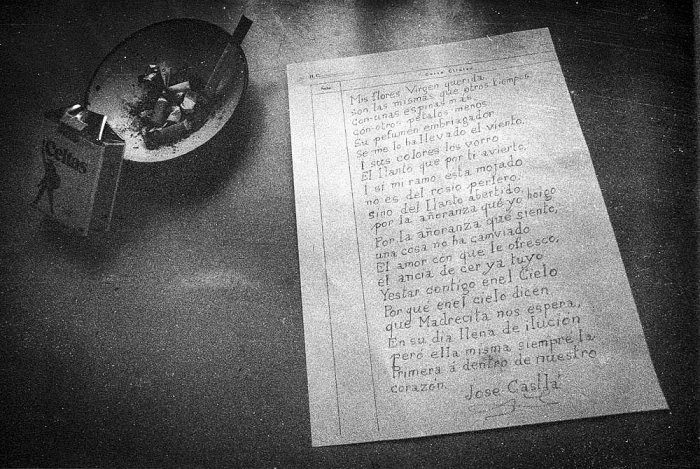 Celtas
H.C.
Curso Clínico
Fecha
Mis flores Virgen querida
son las mismas que otros tiempos
con unas espinas mas
con otros petalos menos
Su pefumen embriagador
se me lo ha llevado el viento.
I sus colores los vorro
El llanto que por ti avierto,
I si mi ramo esta mojado
no es del rosio perfero.
sino del llanto abertido,
por la añoranza que yo
Por la añoranza que siente,
una cosa no ha camviado
El amor con que le ofresco,
el ancia de cer ya tuyo
Yestar contigo enel Cielo
Por que enel cielo dicen
que Madrecita nos espera,
En su dia llena de ilucion
peró ella misma siempre la
Primera á dentro de nuestro
corazón.
Jose Caslla